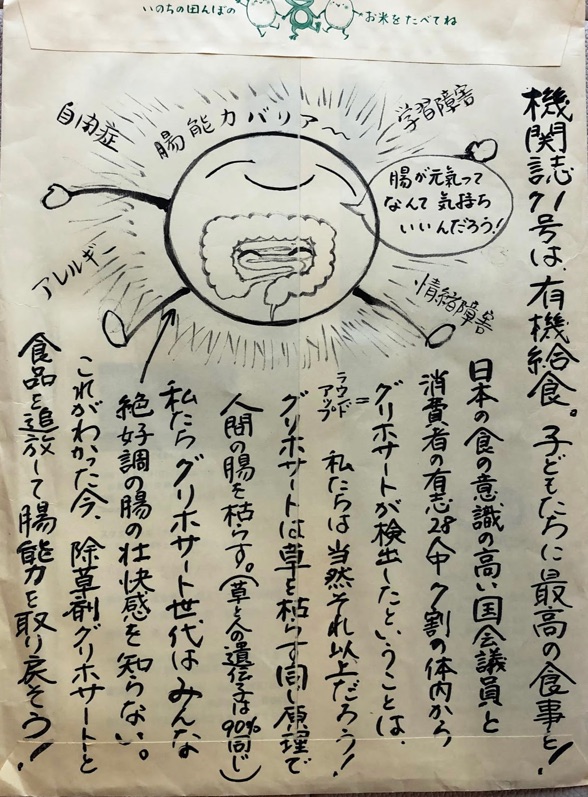 いのちの田んぼの
お米をたべてね
機関誌71号は、有機給食。子どもたちに最高の食事を!
自閉症
腸能力バリア〜
学習障害
腸が元気って
なんて気持ち
いいんだろう!
アレルギー
情緒障害
日本の食の意識の高い国会議員と
消費者の有志28人中7割の体内から
グリホサートが検出したということは、
=ラウンドアップ
私たちは当然それ以上だろう!
グリホサートは草を枯らす同じ原理で
人間の腸を枯らす。(草と人の遺伝子は90%同じ)
私たちグリホサート世代はみんな
絶好調の腸の壮快感を知らない。
これがわかった今、除草剤グリホサートと
食品を追放して腸能力を取り戻そう!